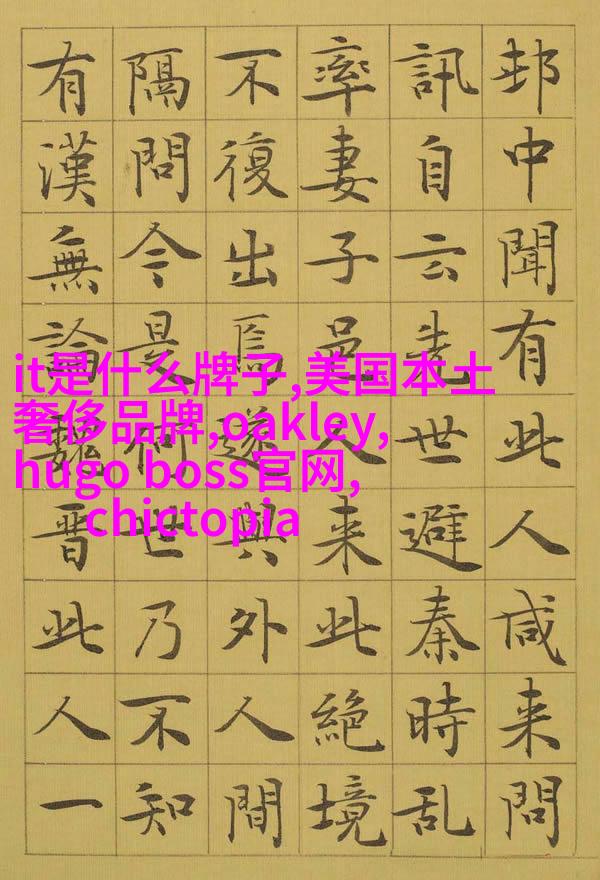 邨中聞有此人咸来問
訊自云先世避秦時乱
率妻子邑人来此絶境
不復出焉遂與外人間
隔問今是何世乃不知
有漢無論魏晋此人一
it是什么牌子,美国本土
奢侈品牌,oakley,
hugo boss官网,
chictopia